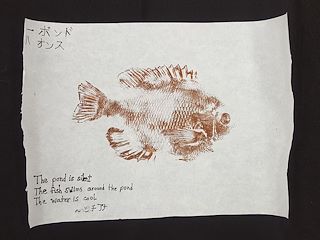 ポンド
オンス
The pond is silent
The fish swims around the pond
The water is cool